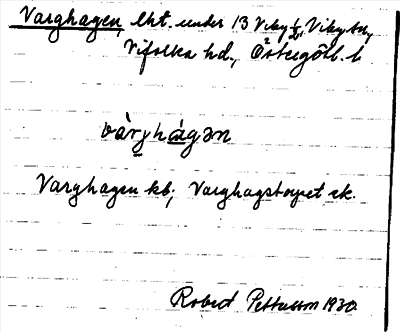 Varghagen, lht. under 13 Viby 1/2, Viby sn,
Vifolka hd., Östergötl. l
vàrjhágən
Varghagen kb; Varghagstorpet ek.
Robert Pettersson 1930.